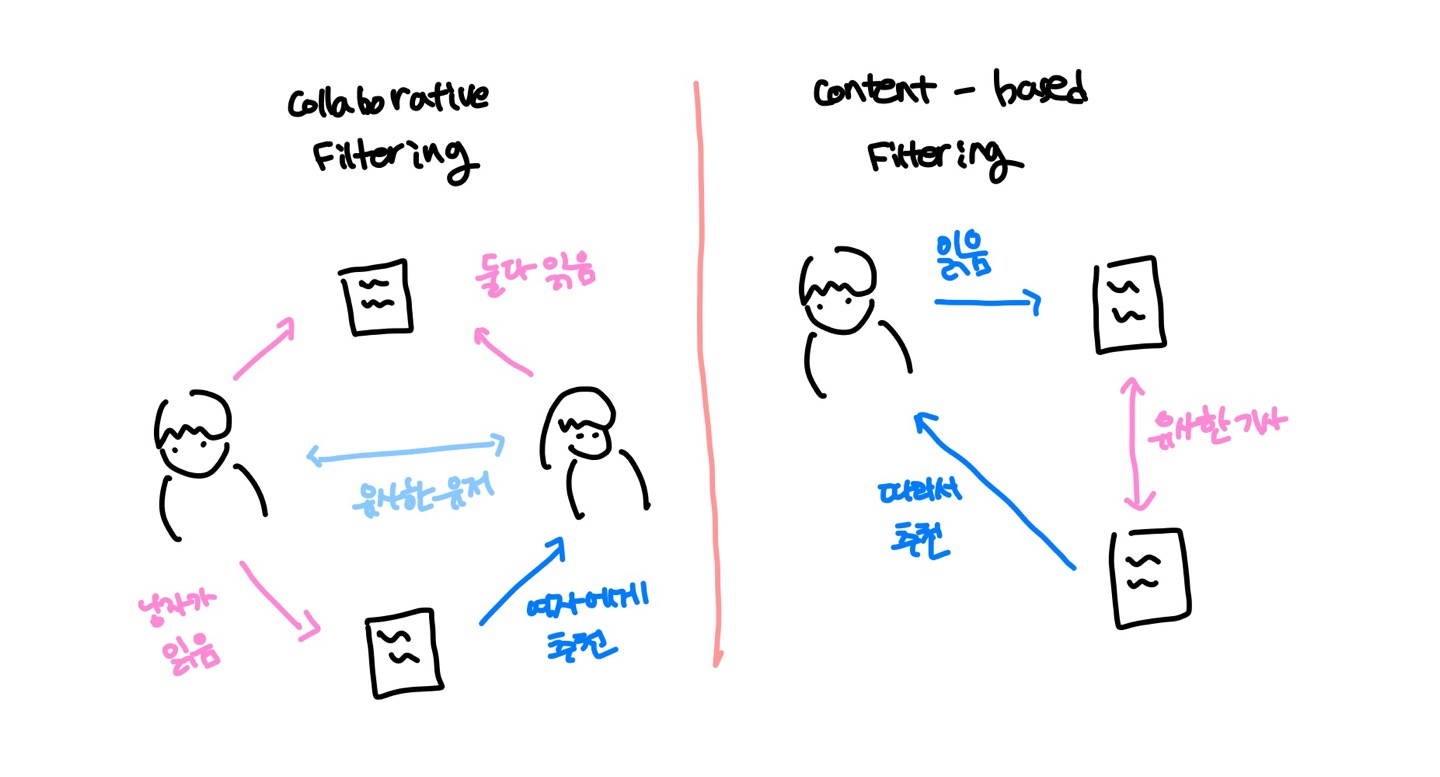 Collaborative
Filtering
둘다 읽음
유사한 유저
남자가
읽음
여자에게
추천
Content - based
Filtering
읽음
유사한 기사
따라서
추천